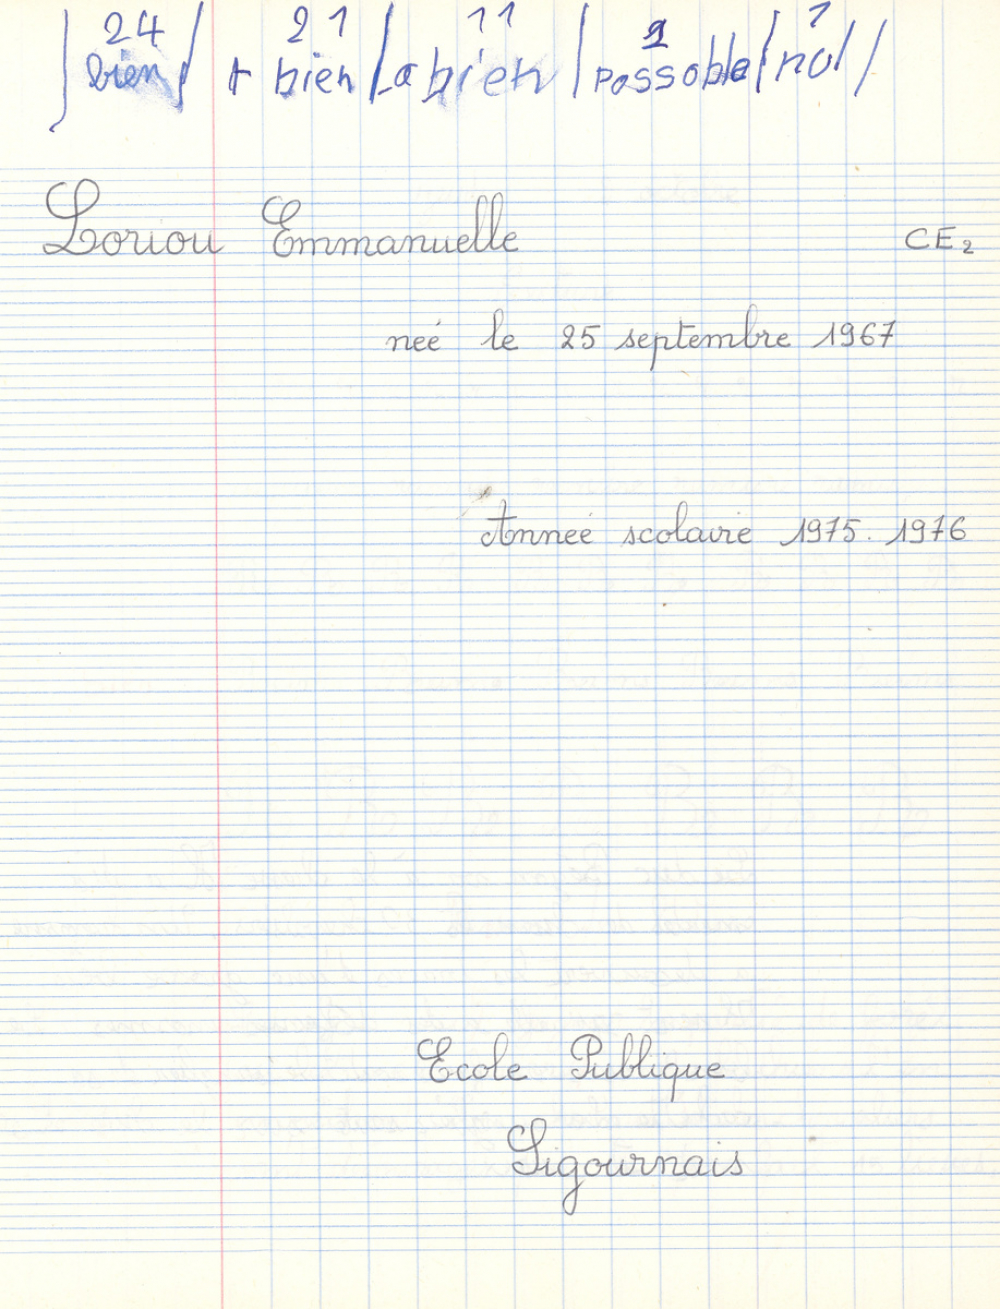 24 21 11 2 1
bien + bien a bien passable nul
Loriou Emmanuelle CE2
née le 25 septembre 1967
Année scolaire 1975. 1976
Ecole Publique
Sigournais